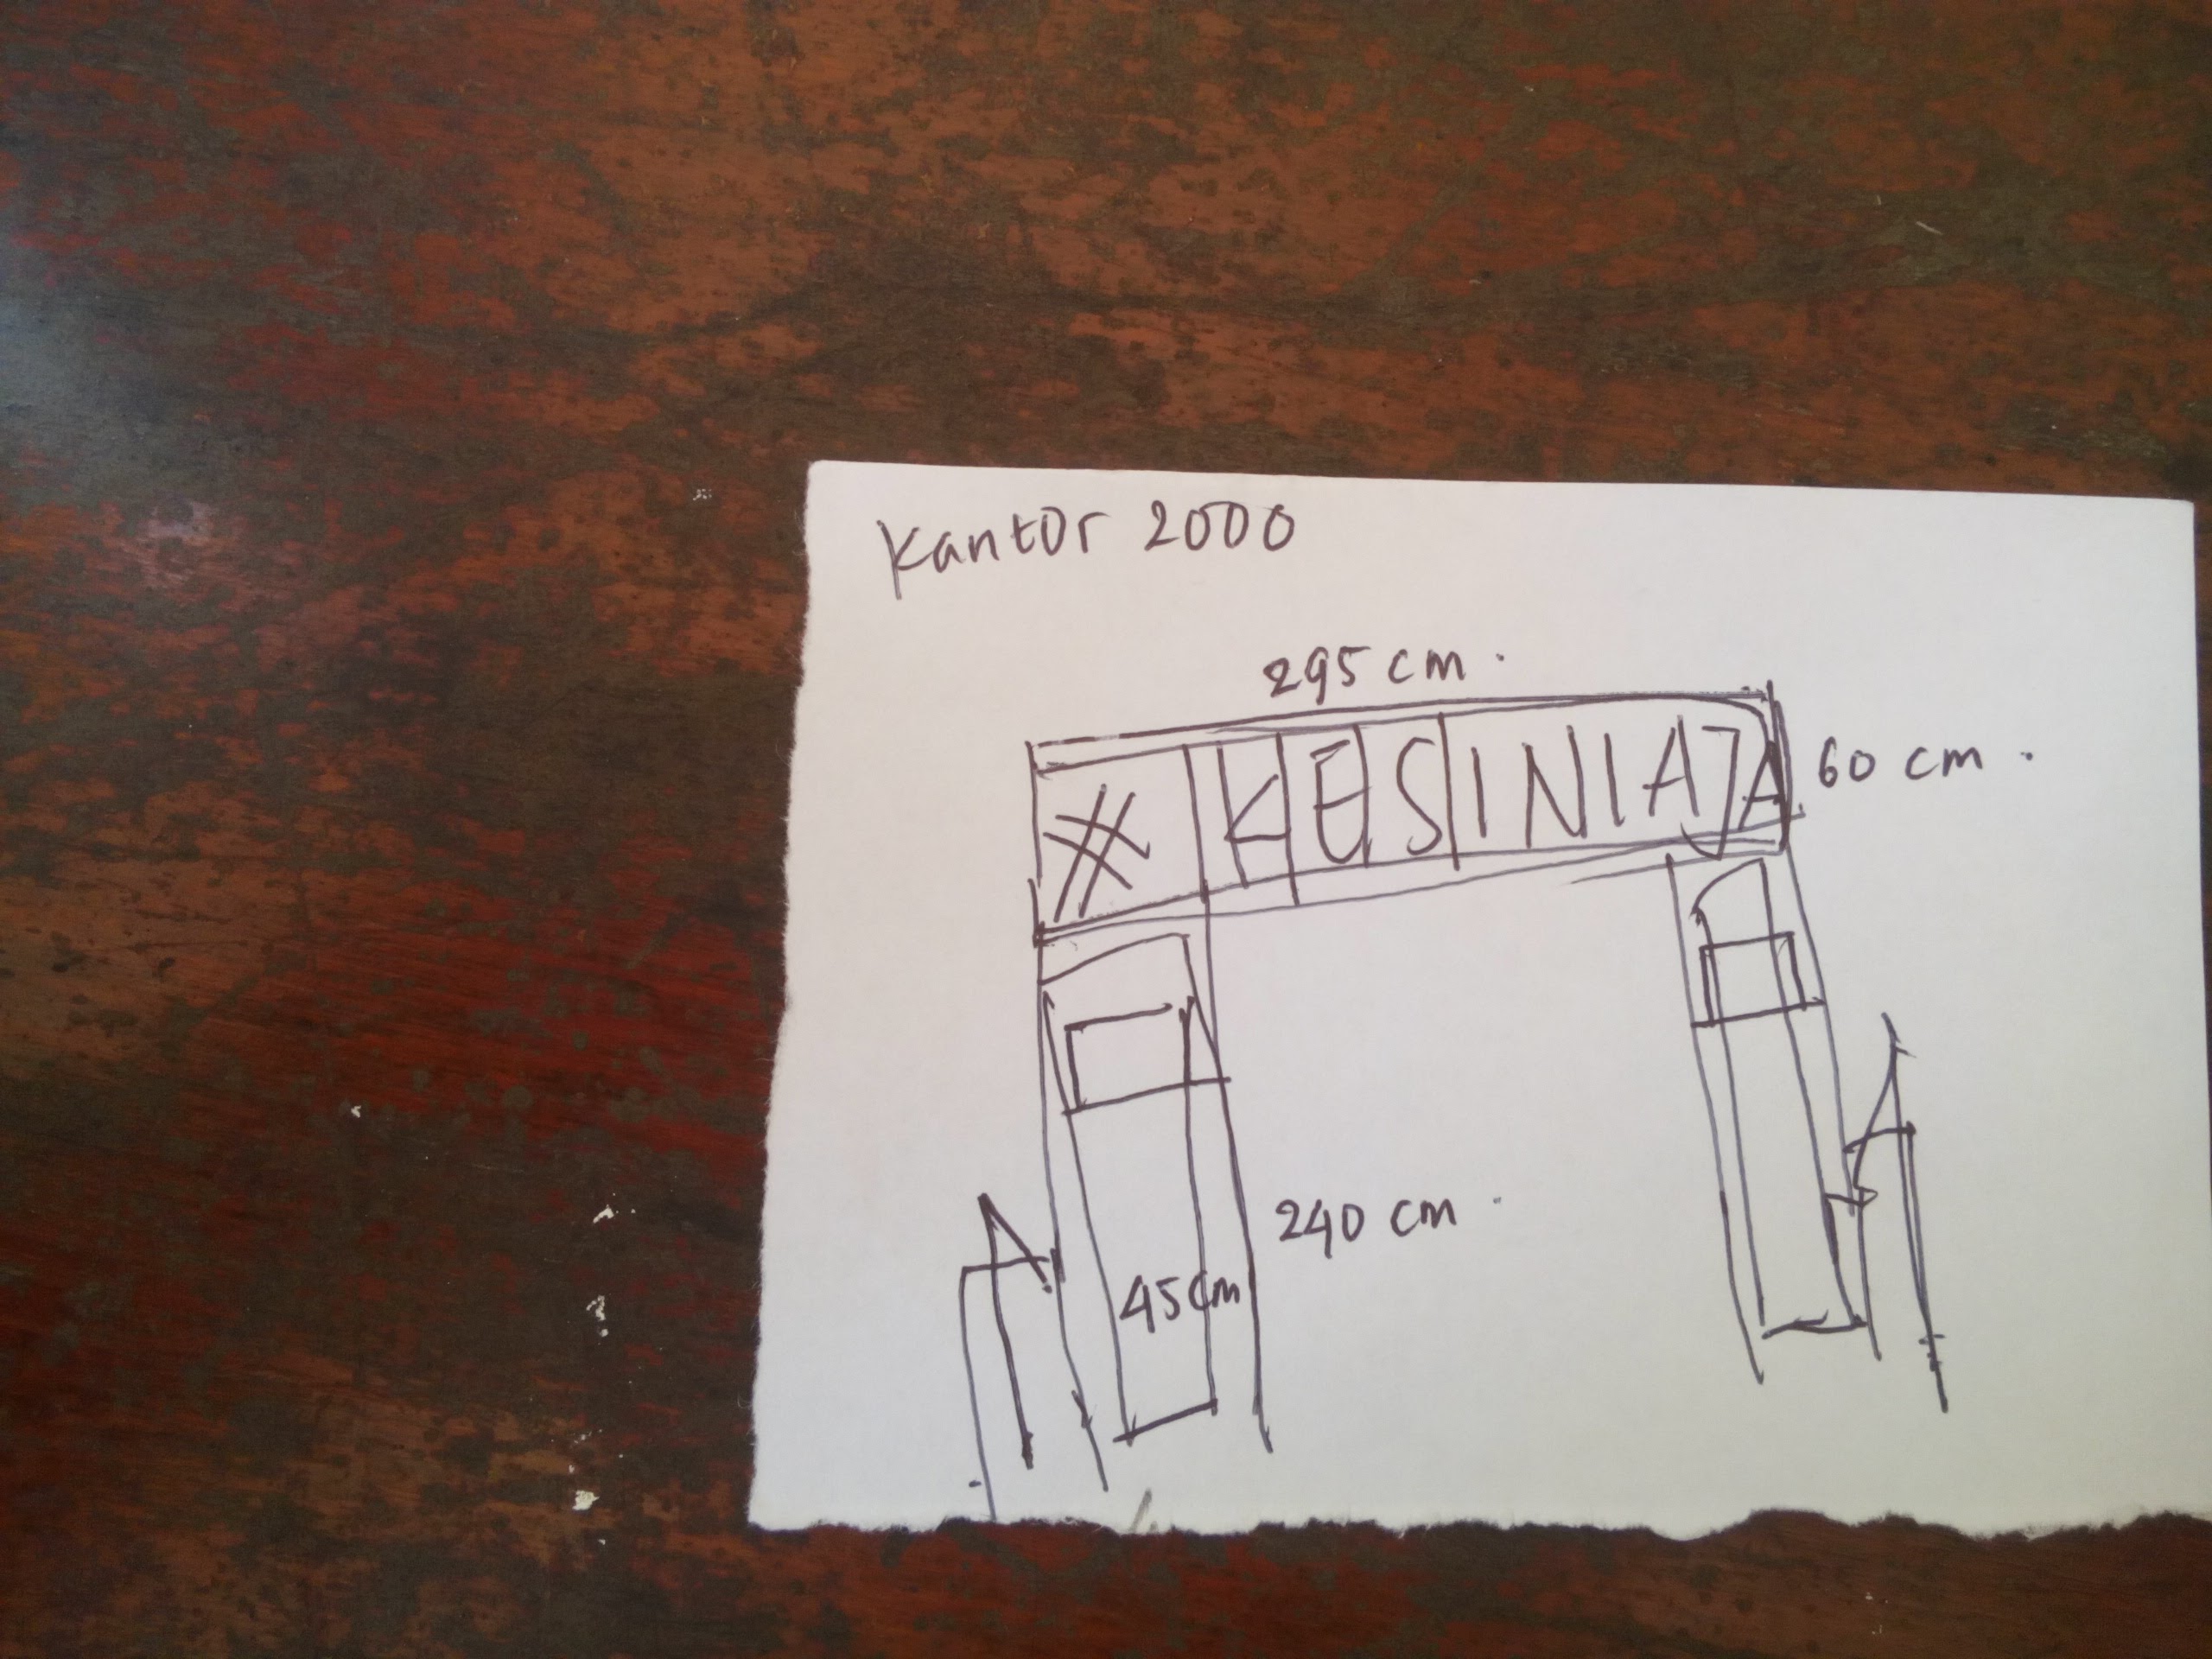 Kantor 2000
295 cm.
# KESINIAJA
60 cm.
240 cm.
45cm